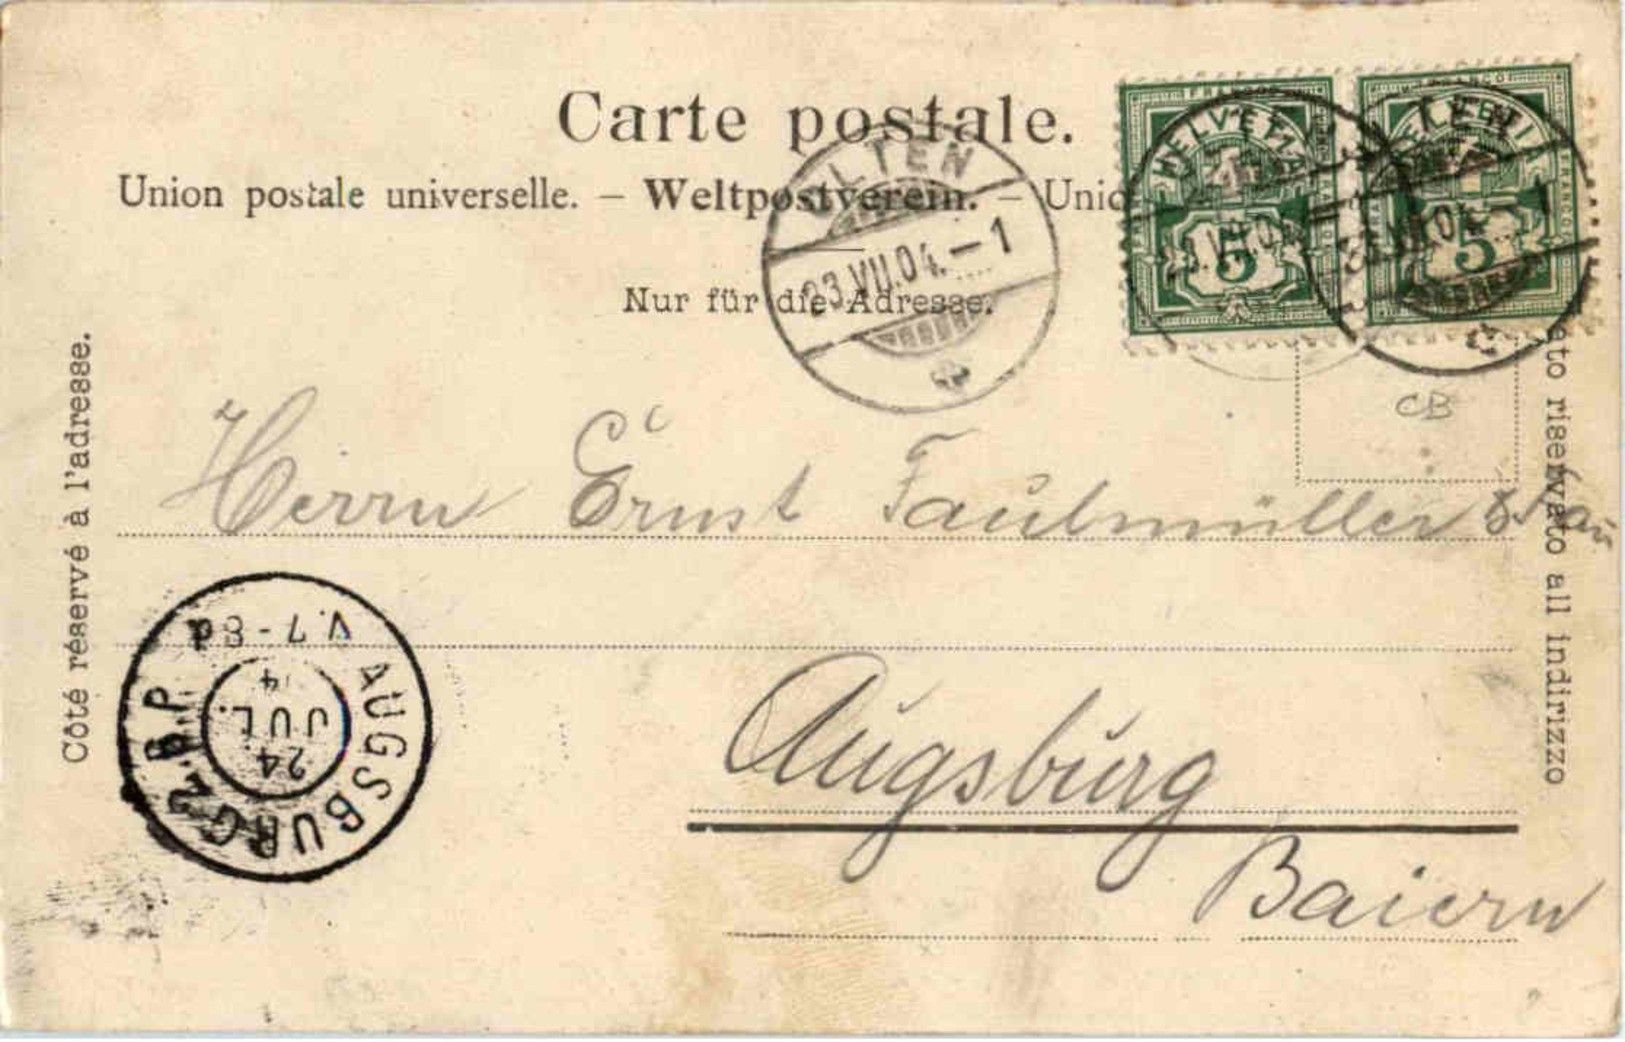 Carte postale.
Union postale universelle. – Weltpostverein. – Unio
Nur für die Adresse.
Côté réservé à l'adresse.
riservato all indirizzo
OLTEN
23.VII.04.–1
FRANCO
HELVETIA
5
FRANCO
HELVETIA
5
VII.04
CB
Herrn Ernst Faulmüller & Frau
Augsburg
Baiern
AUGSBURG 2.B.P.
24
JUL.
V.7-8